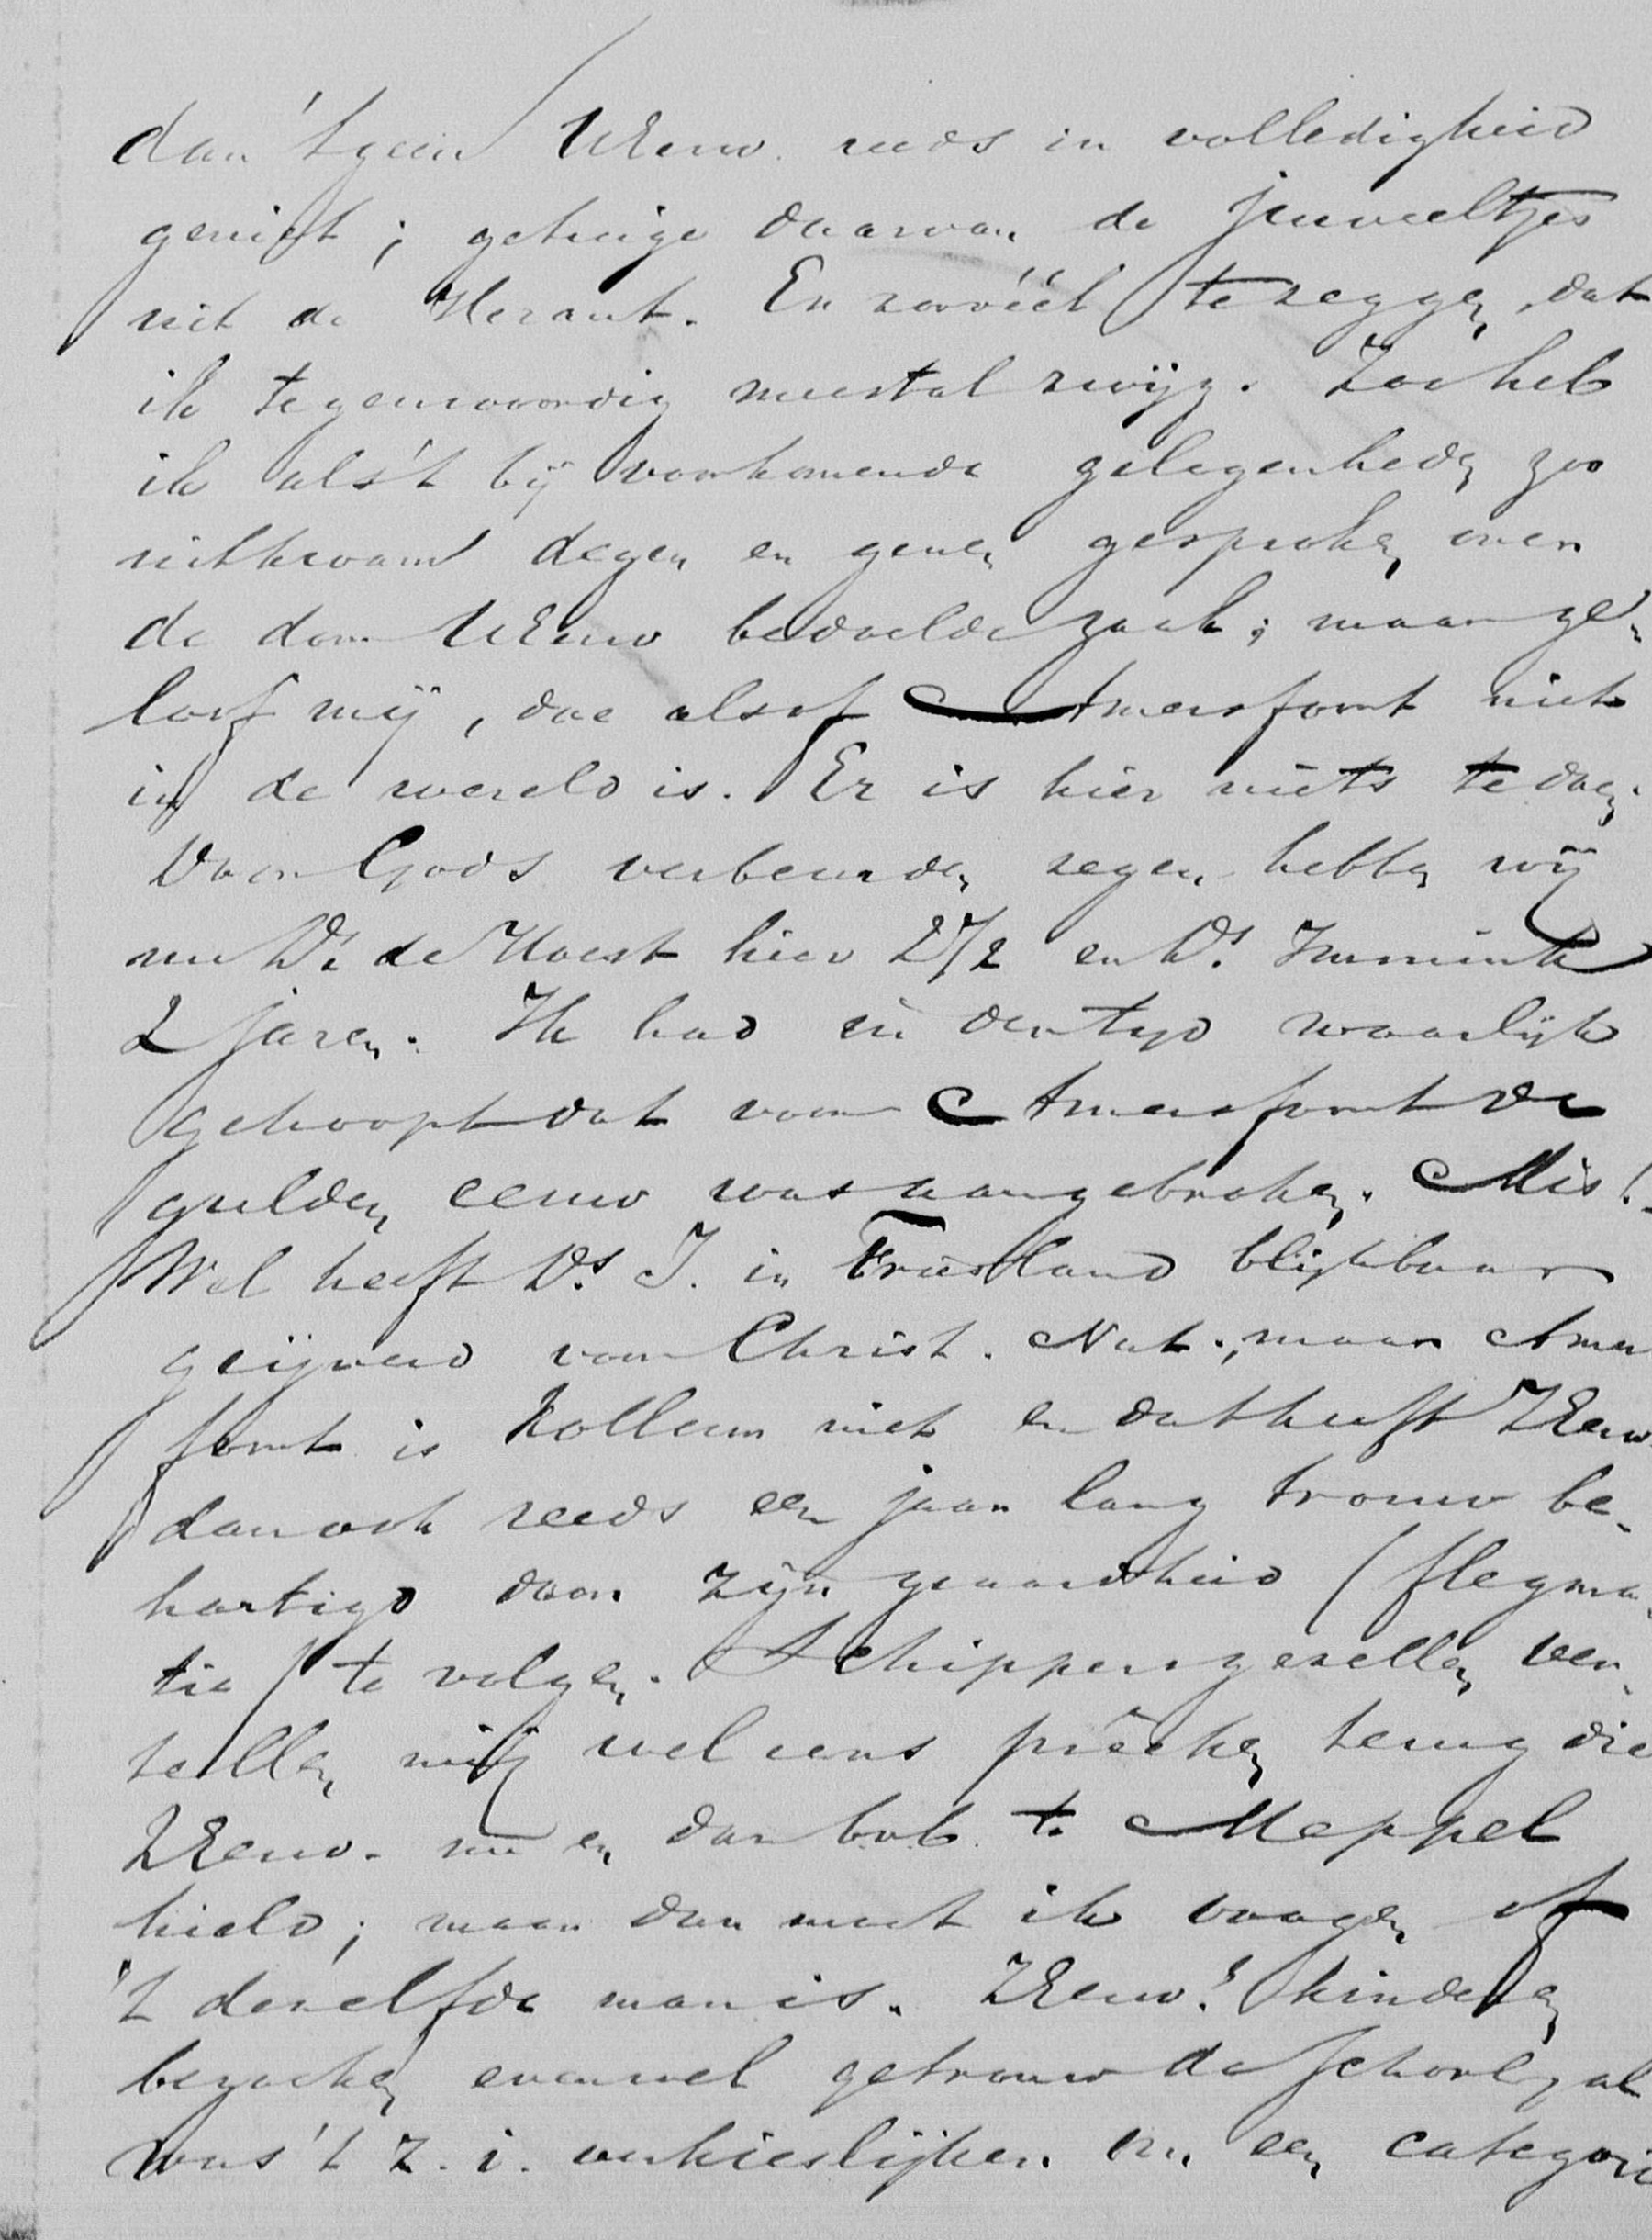 dan 'tgeen UEerw. reeds in volledigheid
geniet; getuige daarvan de juweeltjes
uit de Heraut. En zoovéél te zeggen, dat
ik tegenwoordig meestal zwijg. Zoo heb
ik als't bij voorkomende gelegenheden zoo
uitkwam dezen en genen gesproken over
de door UEerw bedoelde zaak; maar ge-
loof mij, doe alsof Amersfoort niet
in de wereld is. Er is hier niets te doen.
Door Gods verbeurden zegen hebben wij
nu Ds de Hoest hier 2 1/2 en Ds. Immink
2 jaren. Ik had in der tijd waarlijk
gehoopt dat voor Amersfoort de
gulden eeuw was aangebroken. Mis!
Wel heeft Ds. I. in Friesland blijkbaar
geijverd voor Christ. Nat., maar Amers
foort is Kollum niet en dat heeft ZEerw
dan ook reeds een jaar lang trouw be-
hartigd door zijn geaardheid (flegma-
tie) te volgen. Schippersgezellen ver-
tellen mij wel eens preeken terug die
ZEerw. nu en dan te Meppel
hield; maar dan moet ik vragen of
't dezelfde man is. ZEerw.s kinderen
bezoeken evenwel getrouw de School, al
was 't z. i. verkieslijker om een categorie